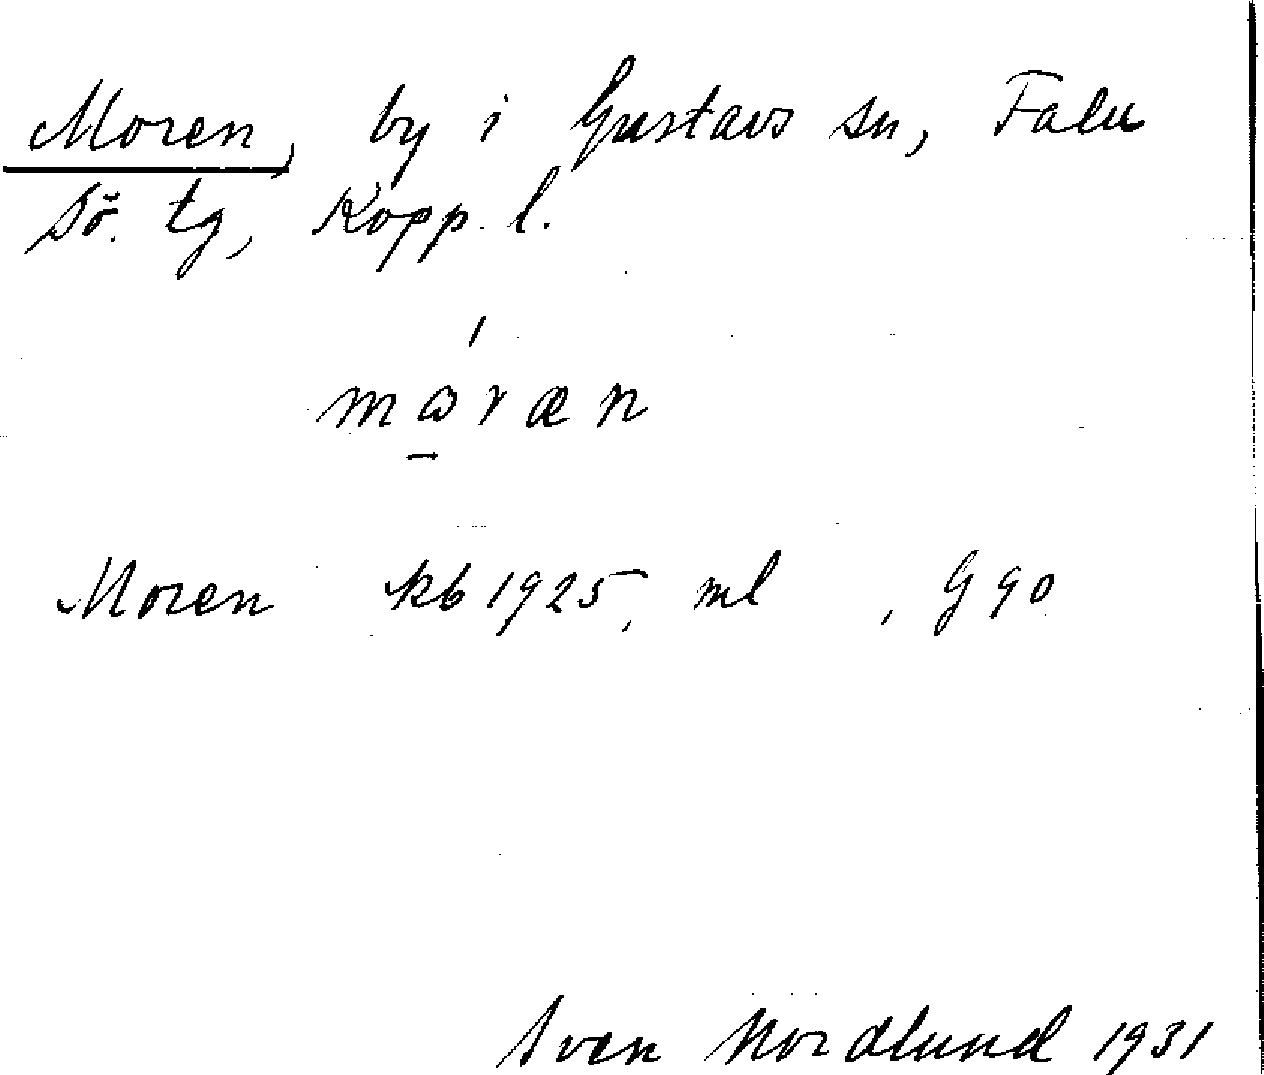 Moren, by i Gustavs sn, Falu
Sö. tg, Kopp. l.
mɷ̲́ræn
Moren kb 1925, ml , G 90
Sven Nordlund 1931